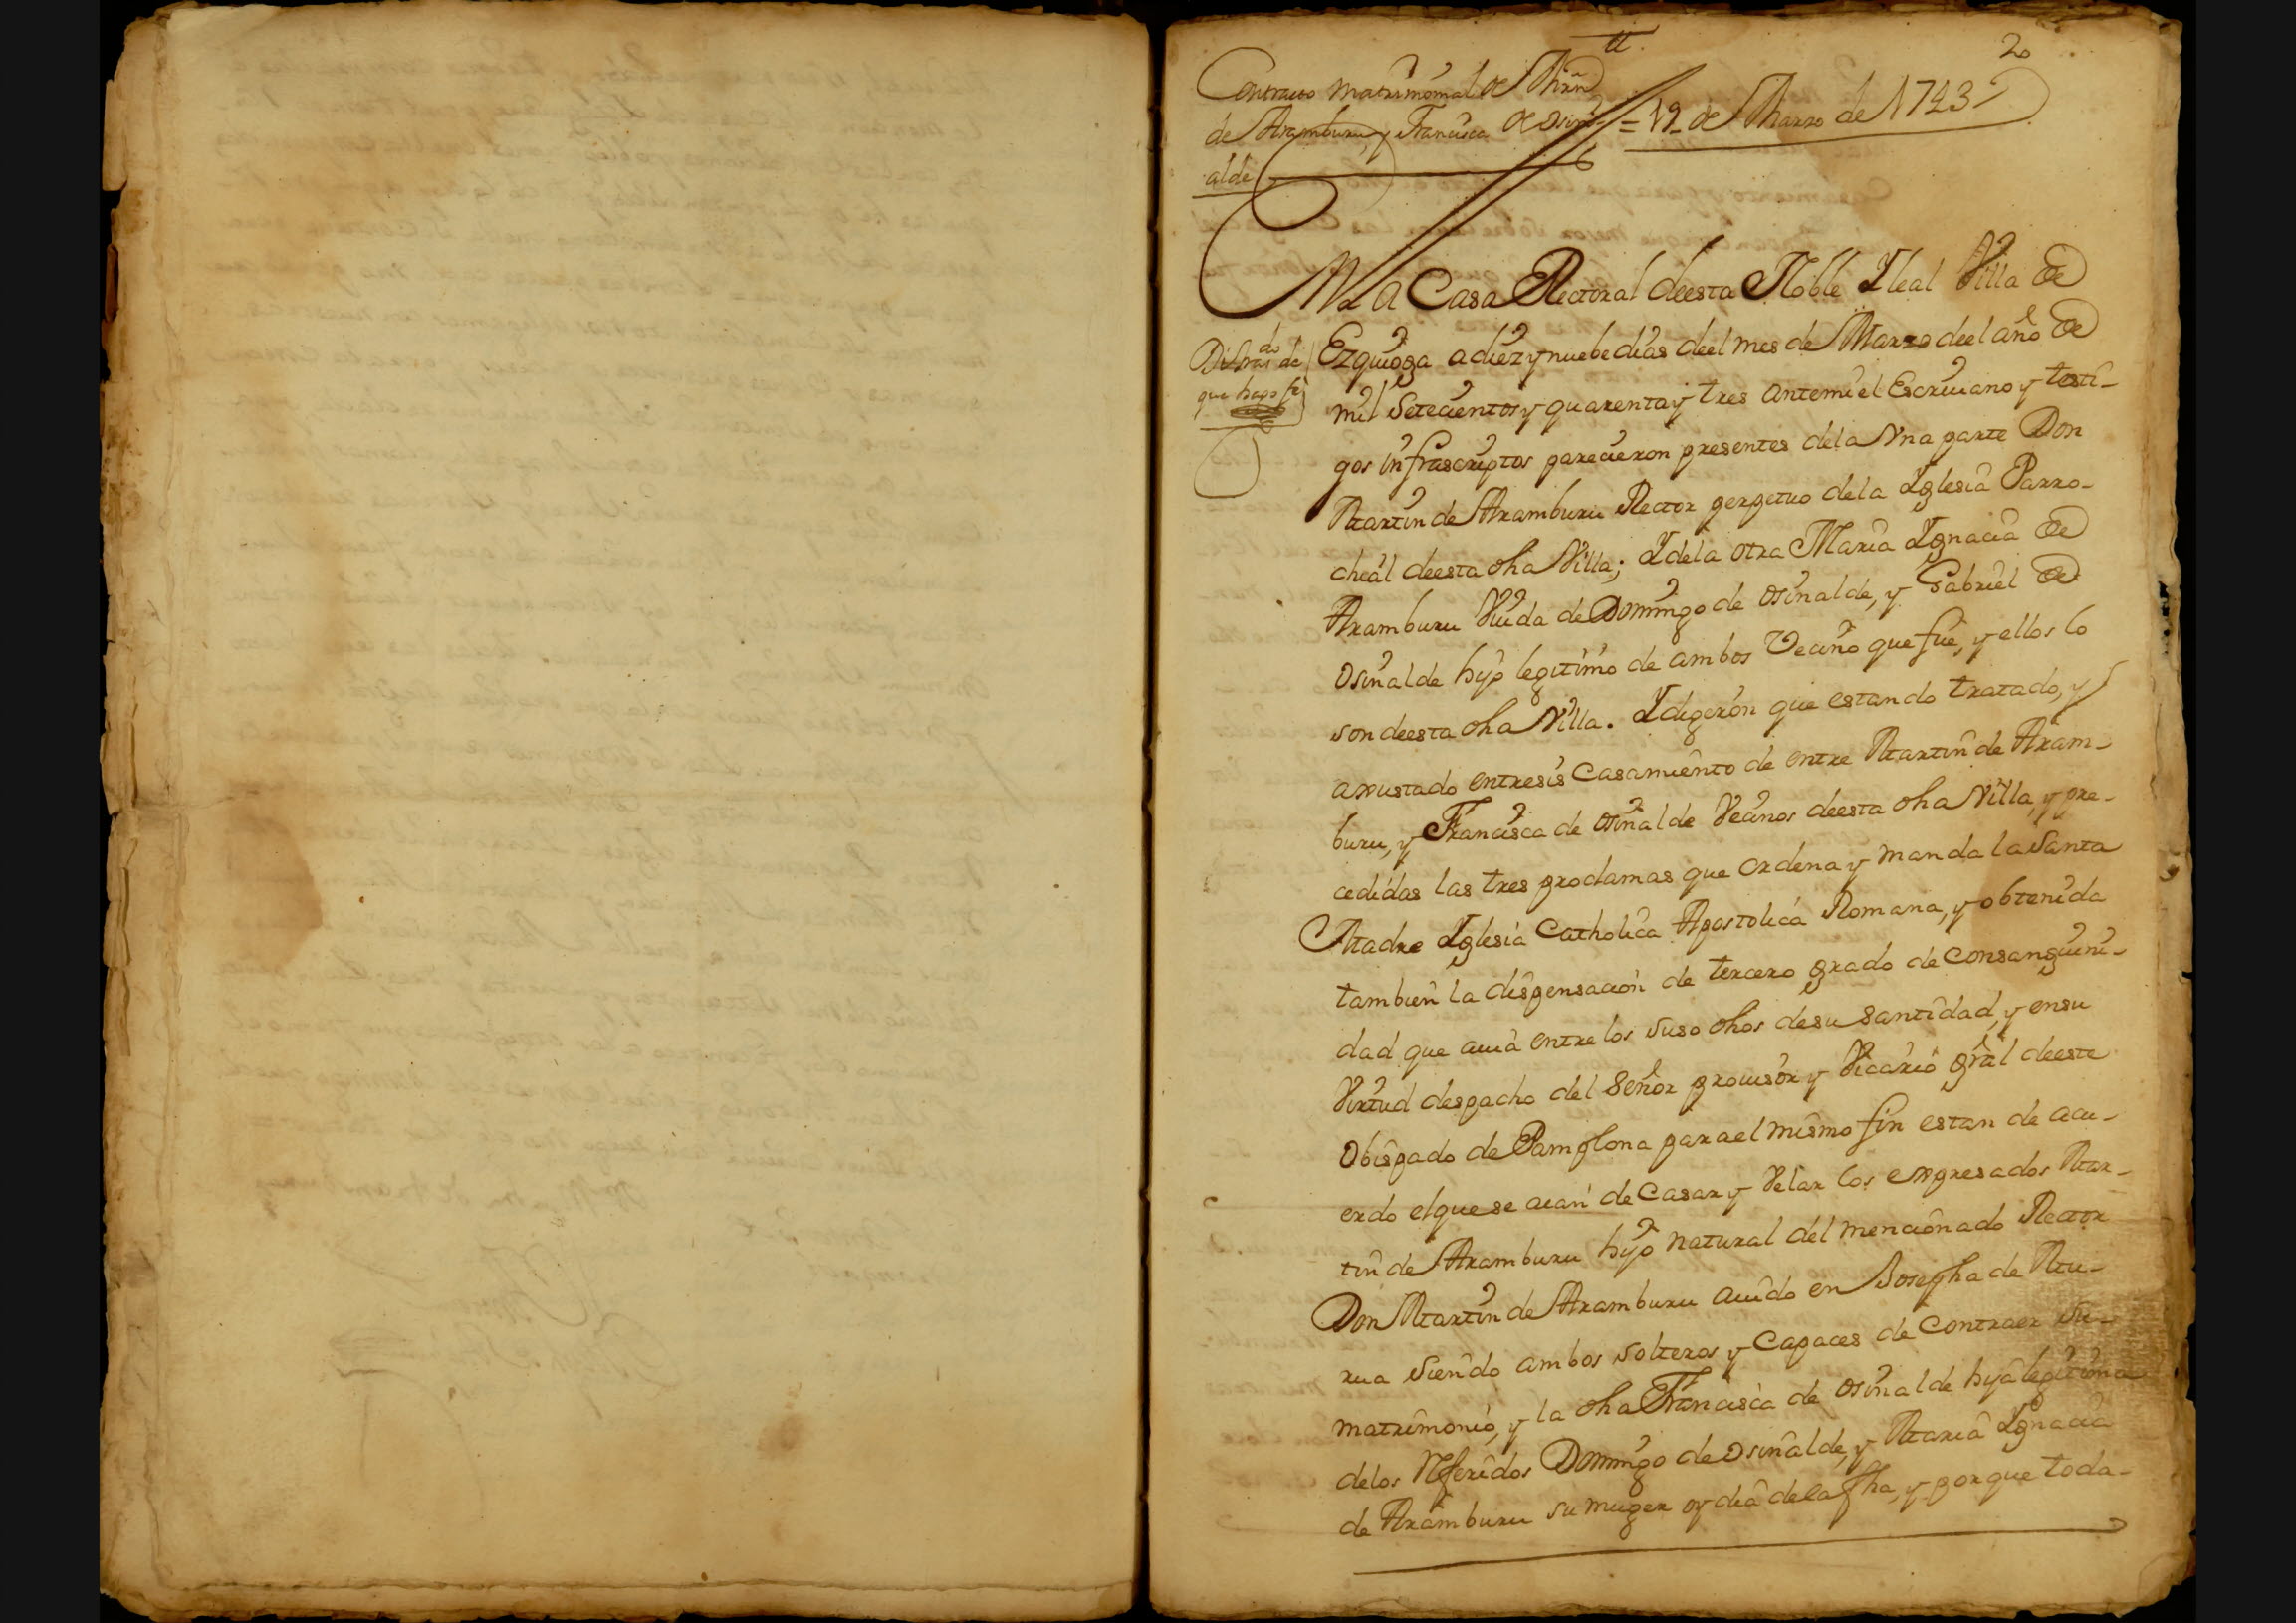 20
Contracto matrimonial de Mrñ
de Aramburu, y Francisca de Osin- = 19 de Marzo de 1743
alde
En la Casa Rectoral deesta Noble Y leal Villa de
Ezquioga a diez y nuebe dias deel mes de Marzo deel año de
que hago fe
mil Setecientos y quarenta y tres antemi el Escriuano y testi-
gos infrascriptos parecieron presentes dela Vna parte Don
Martin de Aramburu Rector perpetuo dela Yglesia Parro-
chial deesta dha Villa; Y dela otra Maria Ygnacia de
Aramburu Viuda de Domingo de Osinalde, y Gabriel de
Osinalde hijo legitimo de ambos Vecino que fue, y ellos lo
son deesta dha Villa. Y digeron que estando tratado, y
axustado entresis Casamiento de entre Martin de Aram-
buru, y Francisca de Osinalde Vecinos deesta dha Villa, y pre-
cedidas las tres proclamas que ordena y manda la Santa
Madre Yglesia Catholica Apostolica Romana, y obtenida
tambien la dispensacion de tercero grado de Consanguini-
dad que auia entre los suso dhos desu Santidad, y ensu
Virtud despacho del Señor prouisor y Vicario gral deeste
Obispado de Pamplona para el mismo fin estan de acu-
erdo elque se aian de Casar y Velar los expresados Mar-
tin de Aramburu hijo natural del mencionado Rector
Don Martin de Aramburu auido en Josepha de Mu-
rua Siendo ambos solteros y Capaces de Contraer Su-
matrimonio, y la dha Francisca de Osinalde hija legitima
delos Referidos Domingo de Osinalde, y Maria Ygnacia
de Aramburu su muger oy dia dela fha, y porque toda-